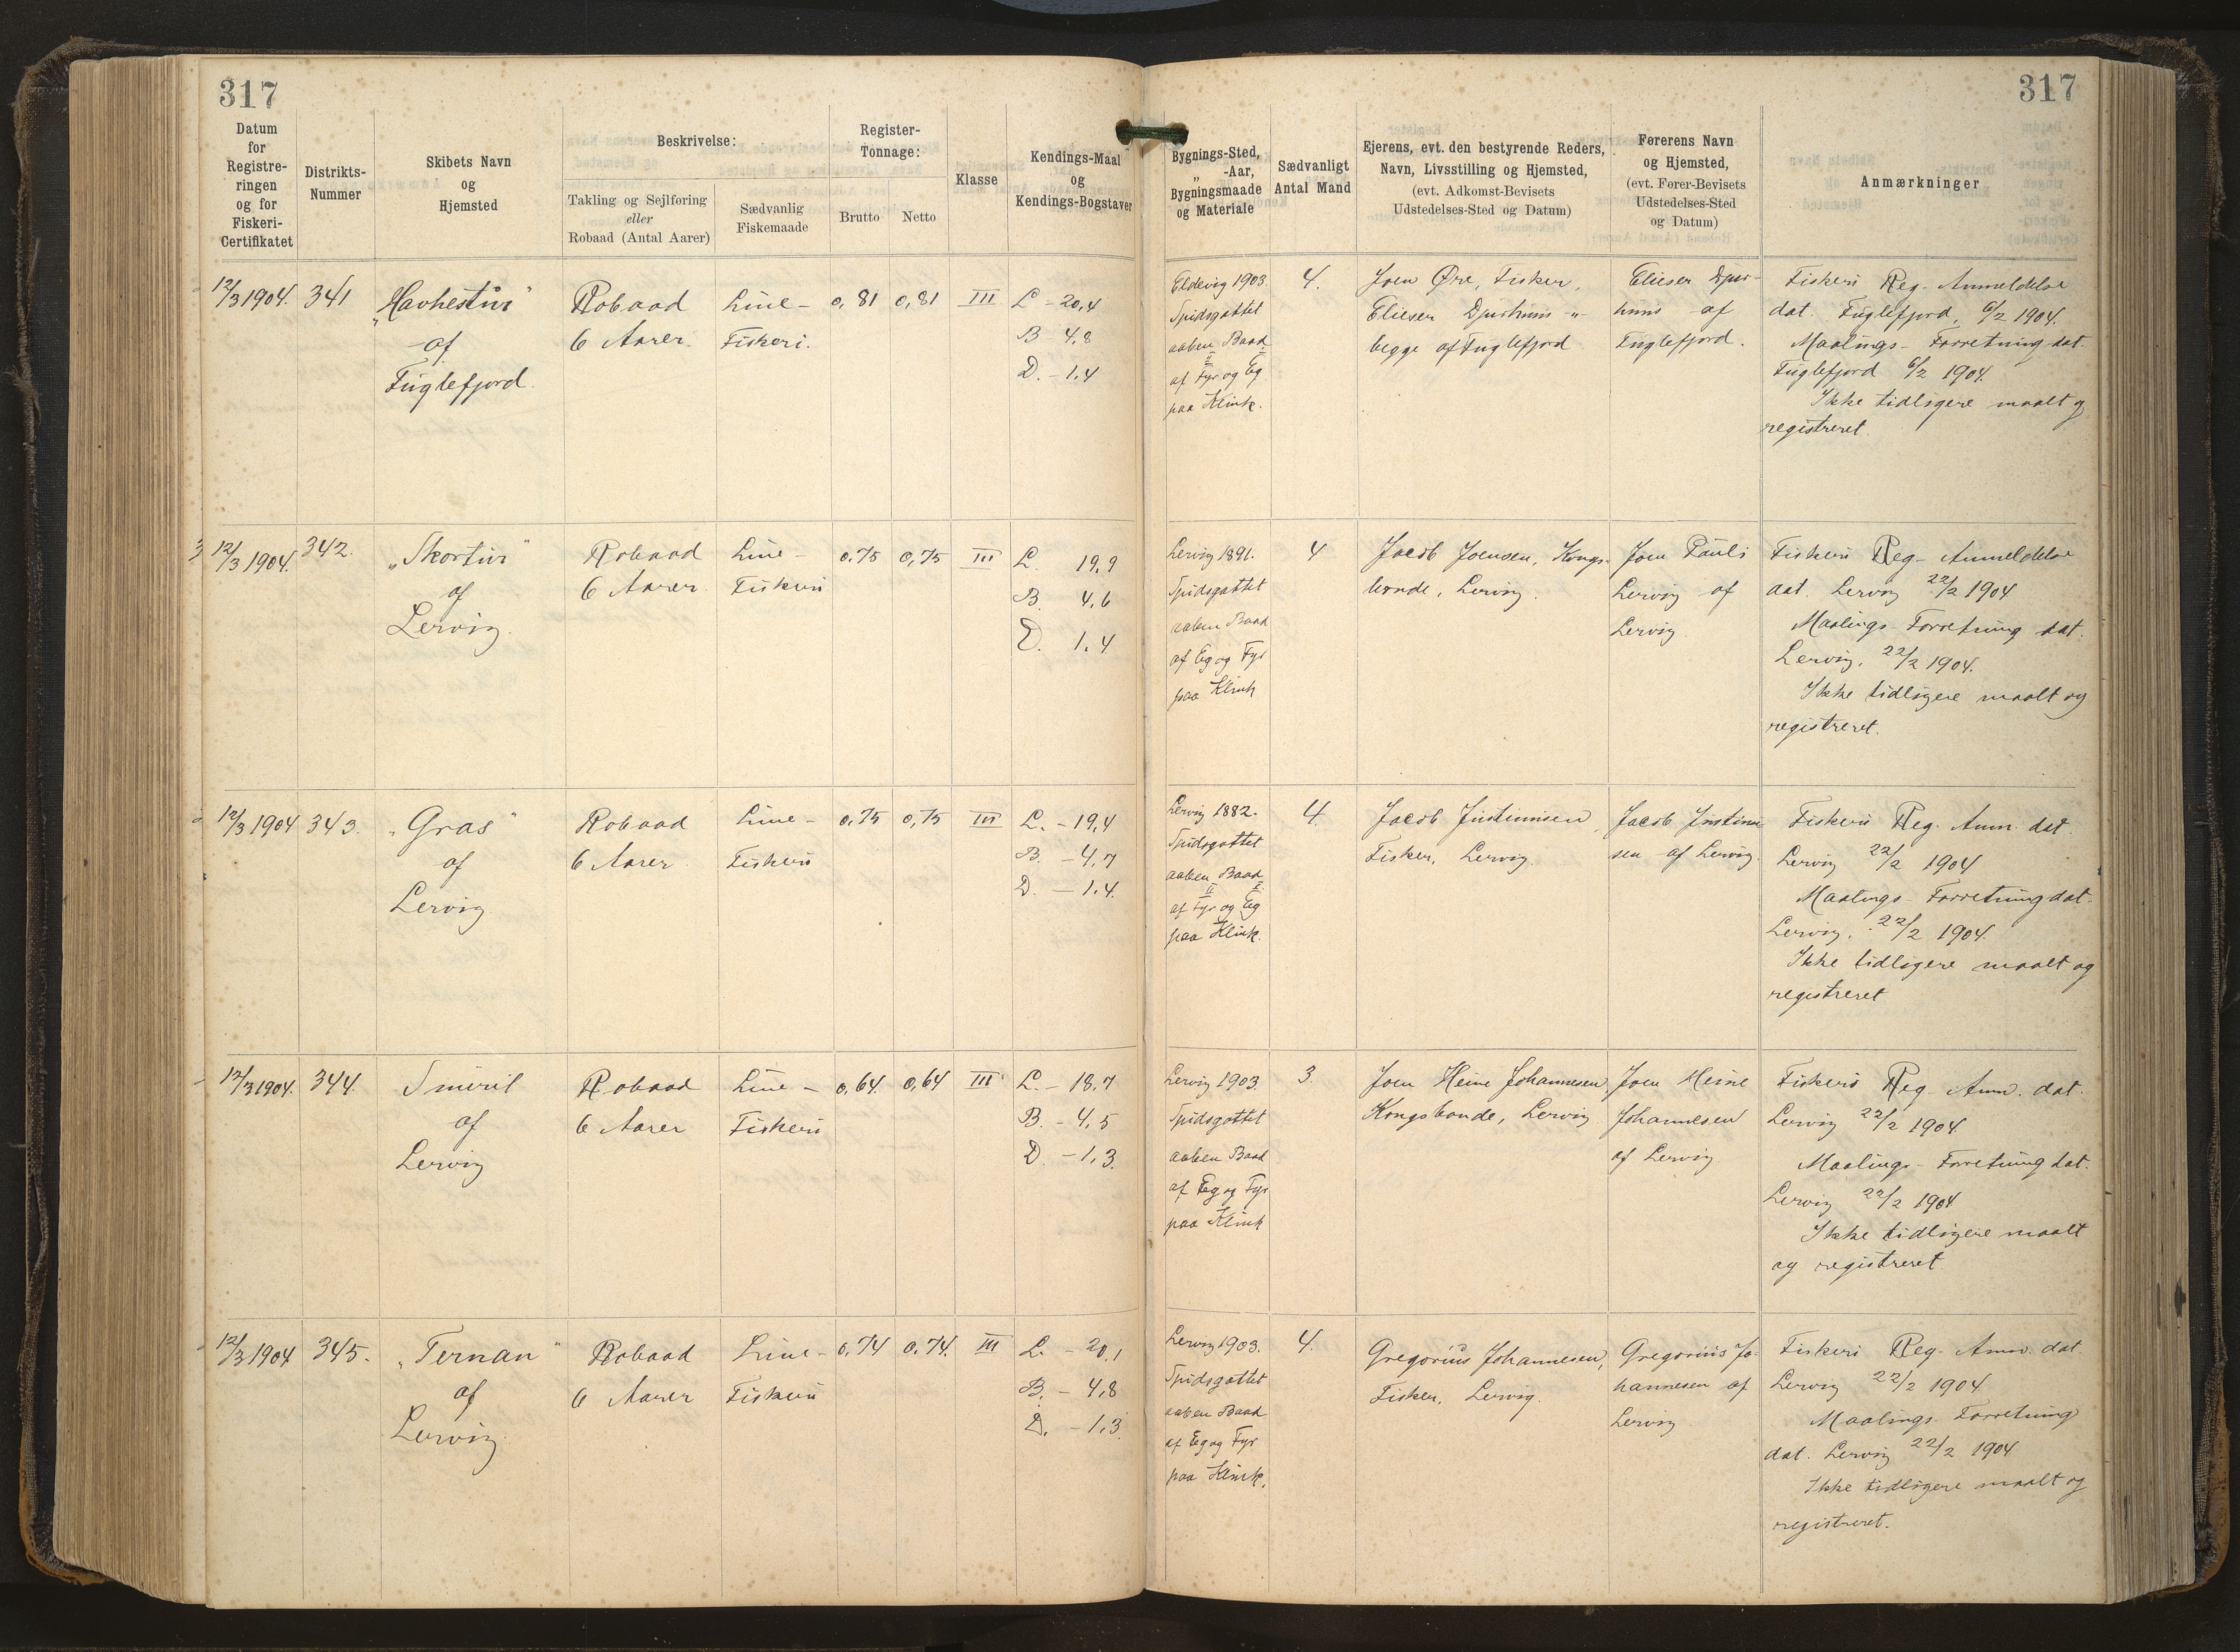 317
317
Datum for Registreringen og for Fiskeri-Certifikatet
Distrikts-Nummer
Skibets Navn og Hjemsted
Beskrivelse:
Takling og Sejlføring eller Robaad (Antal Aarer)
Sædvanlig Fiskemaade
Register-Tonnage:
Brutto
Netto
Klasse
Kendings-Maal og Kendings-Bogstaver
Bygnings-Sted, „ -Aar, Bygningsmaade og Materiale
Sædvanligt Antal Mand
Ejerens, evt. den bestyrende Reders, Navn, Livsstilling og Hjemsted, (evt. Adkomst-Bevisets Udstedelses-Sted og Datum)
Førerens Navn og Hjemsted, (evt. Fører-Bevisets Udstedelses-Sted og Datum)
Anmærkninger
12/3 1904. 341 „Havhestur" Robaad Line- 0,81 0,81 III L - 20,4
af 6 Aarer Fiskeri. B - 4,8
Fuglefjord. D. - 1,4
Eldevig 1903
Spidsgattet
aaben Baad
af Fyr og Eg
paa Klink.
4.
Joen Øre, Fisker,
Elieser Djurhuus -"-
begge af Fuglefjord
Elieser Djur-
huus af
Fuglefjord.
Fiskeri Reg- Anmeldelse
dat. Fuglefjord, 6/2 1904.
Maalings- Forretning dat.
Fuglefjord 6/2 1904.
Ikke tidligere maalt og
registreret.
12/3 1904. 342. „Skortur" Robaad Line- 0.75 0,75 III L. 19,9
af 6 Aarer. Fiskeri B. 4,6
Lervig. D. 1,4
Lervig 1891.
Spidsgattet
aaben Baad
af Eg og Fyr
paa Klink
4
Jacob Joensen, Kongs-
bonde, Lervig.
Joen Pauli
Lervig af
Lervig.
Fiskeri Reg- Anmeldelse
dat. Lervig 22/2 1904
Maalings- Forretning dat.
Lervig, 22/2 1904.
Ikke tidligere maalt og
registreret.
12/3 1904 343. „Gras" Robaad Line- 0,75 0,75 III L. - 19,4
af 6 Aarer. Fiskeri B. - 4,7
Lervig D. - 1,4.
Lervig 1882.
Spidsgattet
aaben Baad
af Fyr og Eg
paa Klink.
4.
Jacob Justinusen,
Fisker, Lervig
Jacob Justinu
sen af Lervig.
Fiskeri Reg. Anm. dat.
Lervig 22/2 1904
Maalings- Forretning dat.
Lervig, 22/2 1904.
Ikke tidligere maalt og
registreret
12/3 1904. 344. Smiril Robaad Line - 0,64. 0,64 III L. - 18,7
af 6 Aarer Fiskeri B. - 4,5
Lervig D. - 1,3.
Lervig 1903.
Spidsgattet
aaben Baad
af Eg og Fyr
paa Klink
3.
Joen Heine Johannesen
Kongsbonde, Lervig
Joen Heine
Johannesen
af Lervig
Fiskeri Reg. Anm. dat.
Lervig 22/2 1904.
Maalings- Forretning dat.
Lervig 22/2 1904
Ikke tidligere maalt
og registreret
12/3 1904 345. „Ternan" Robaad Line- 0,74 0,74. III L. - 20,1
af 6 Aarer Fiskeri B. - 4,8
Lervig. D. - 1,3.
Lervig 1903.
Spidsgattet
aaben Baad
af Eg og Fyr
paa Klink.
4.
Gregorius Johannesen,
Fisker, Lervig.
Gregorius Jo-
hannesen af
Lervig.
Fiskeri Reg- Anm. dat.
Lervig 22/2 1904
Maalings- Forretning
dat. Lervig 22/2 1904
Ikke tidligere maalt og
registreret.